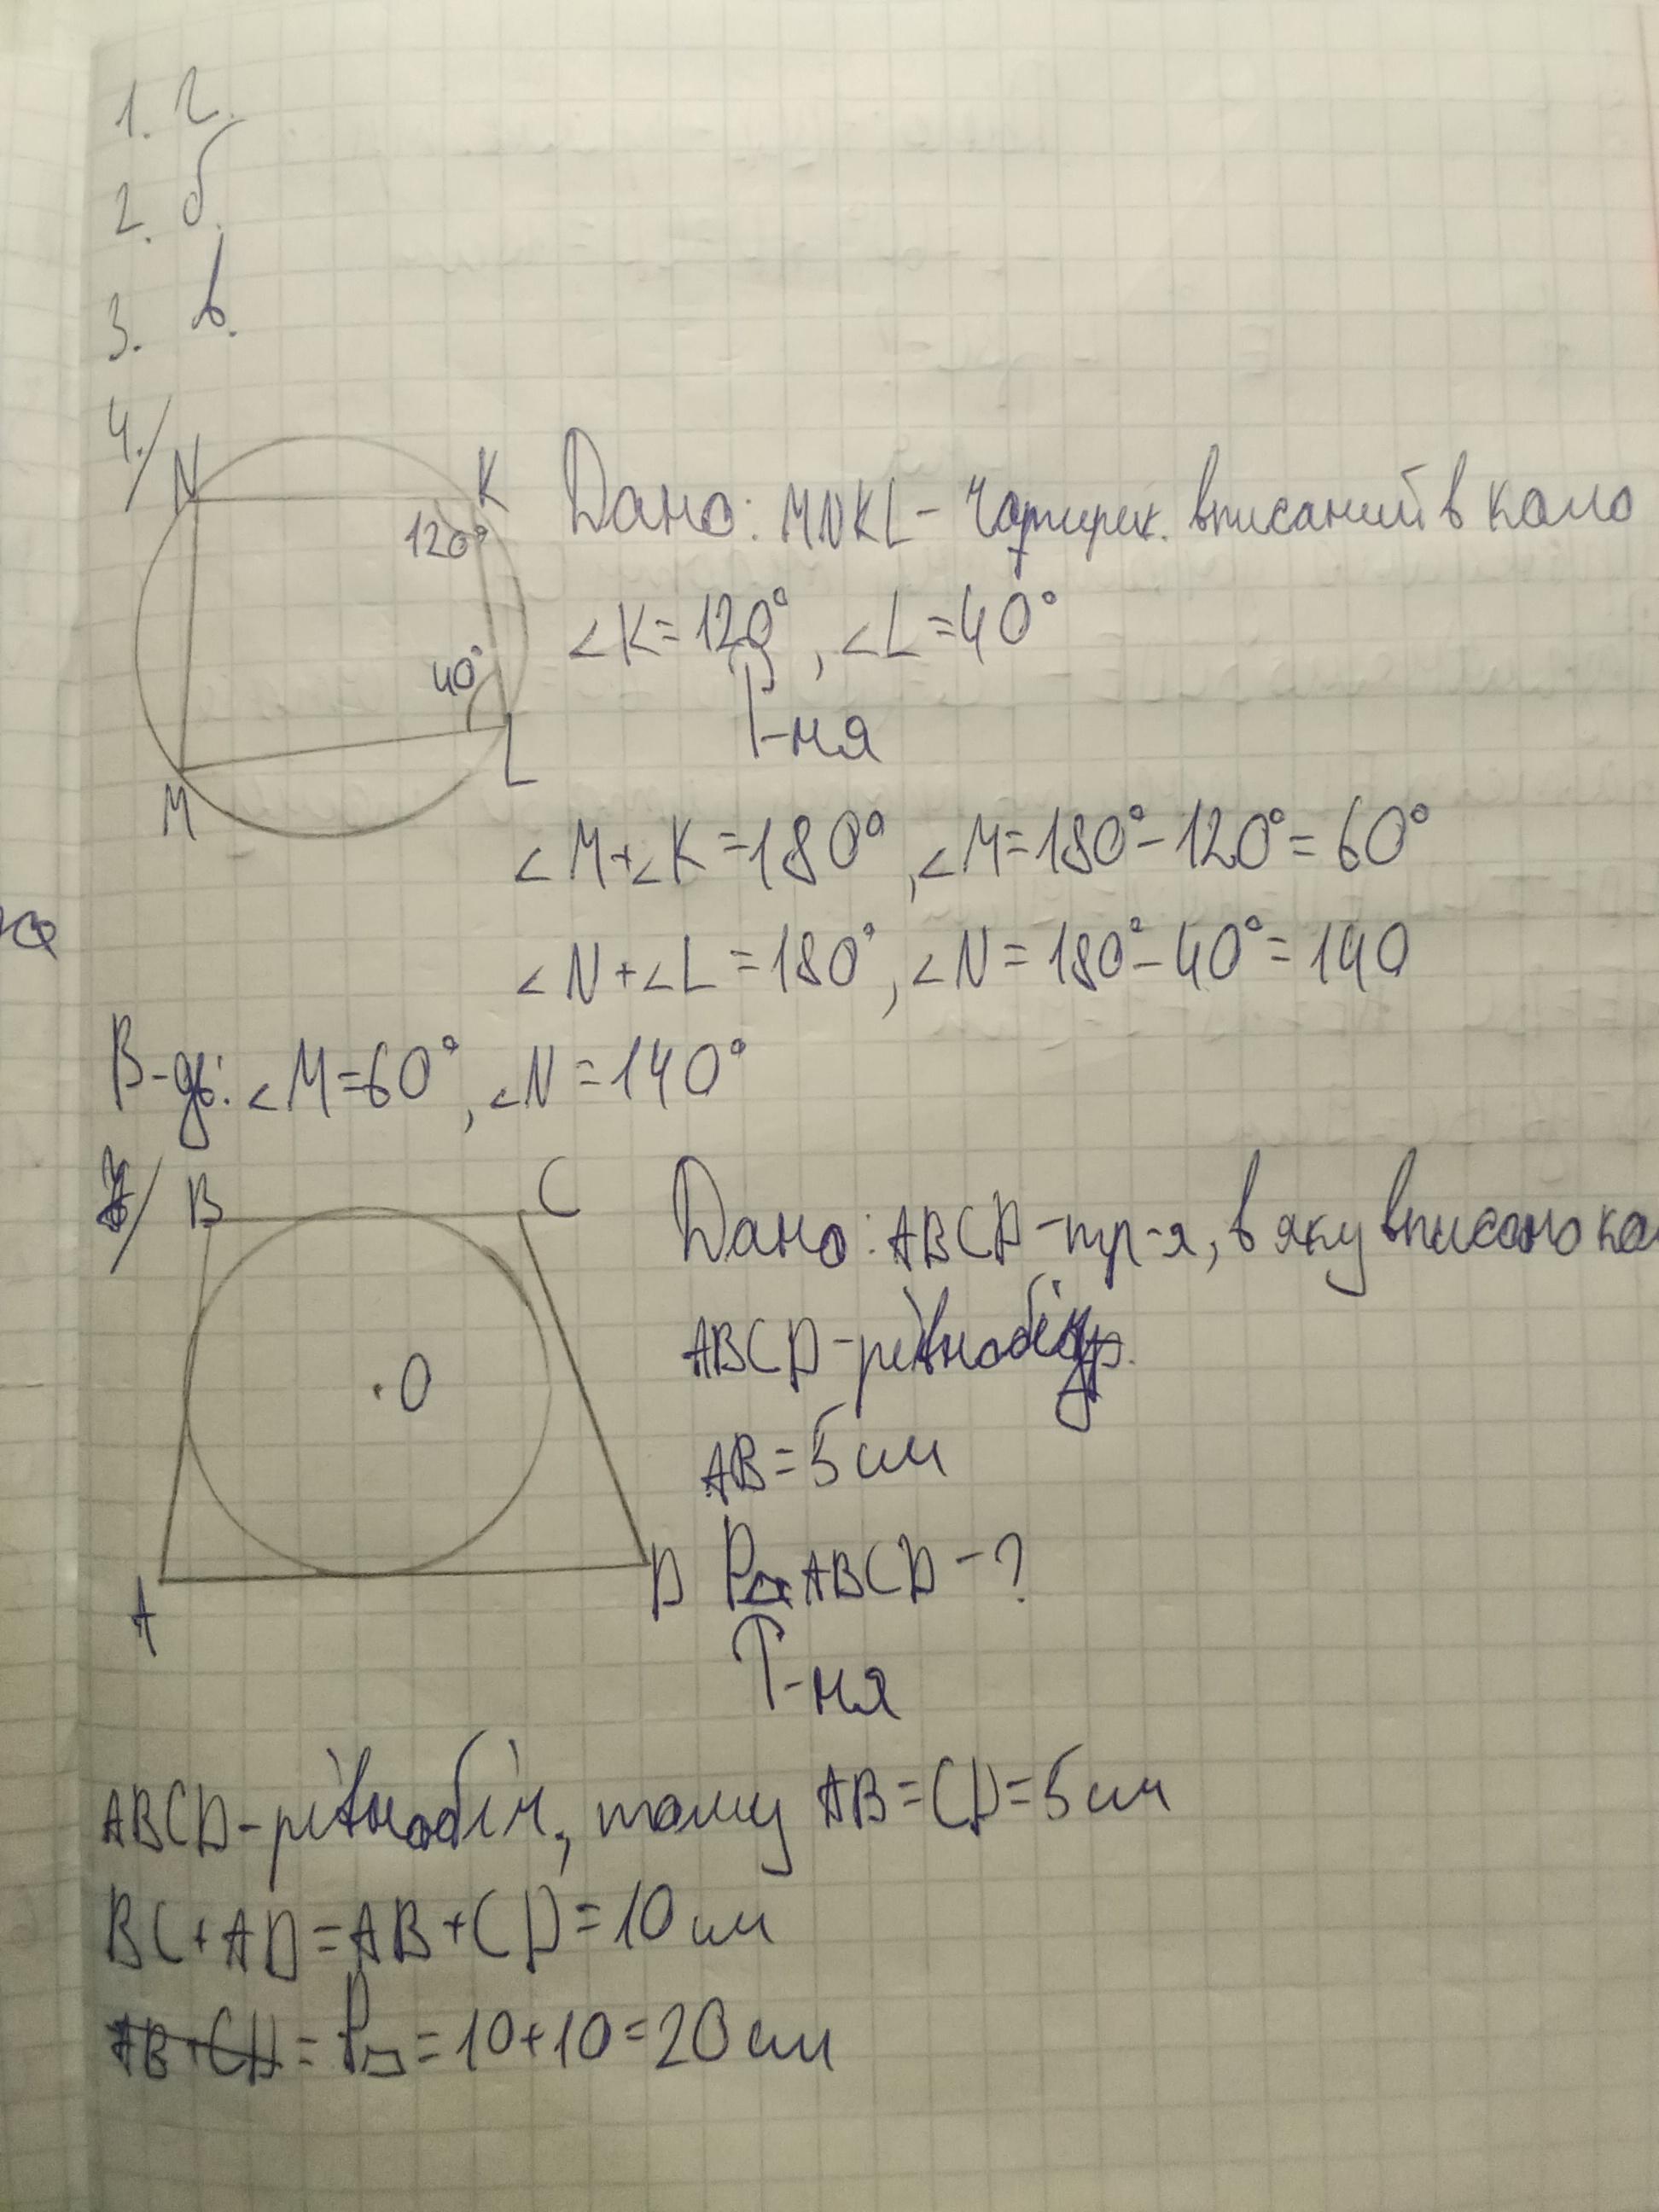 1. г.
2. б.
3. в.
4./
N
K
120°
40°
L
M
Дано: MNKL - Чотирик. вписаний в коло
∠K=120°, ∠L=40°
Р-ня
∠M+∠K=180°, ∠M=180°-120°=60°
∠N+∠L=180°, ∠N=180°-40°=140
В-дь: ∠M=60°, ∠N=140°
B
C
O
A
D
Дано: ABCD-тр-я, в яку вписано ко
ABCD-рівнобічн.
AB=5см
P ABCD-?
Р-ня
ABCD-рівнобіч, тому AB=CD=5см
BC+AD=AB+CD=10см
AB+CD = P▱=10+10=20см